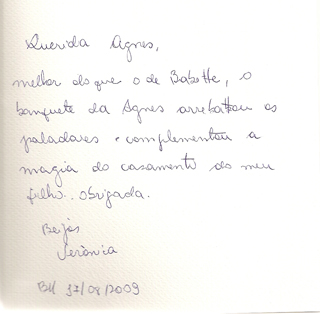 Querida Agnes,
melhor do que o de Babette, o
banquete da Agnes arrebatou os
paladares e complementou a
magia do casamento do meu
filho. Obrigada.
Beijos
Verônica
BH 17/08/2009